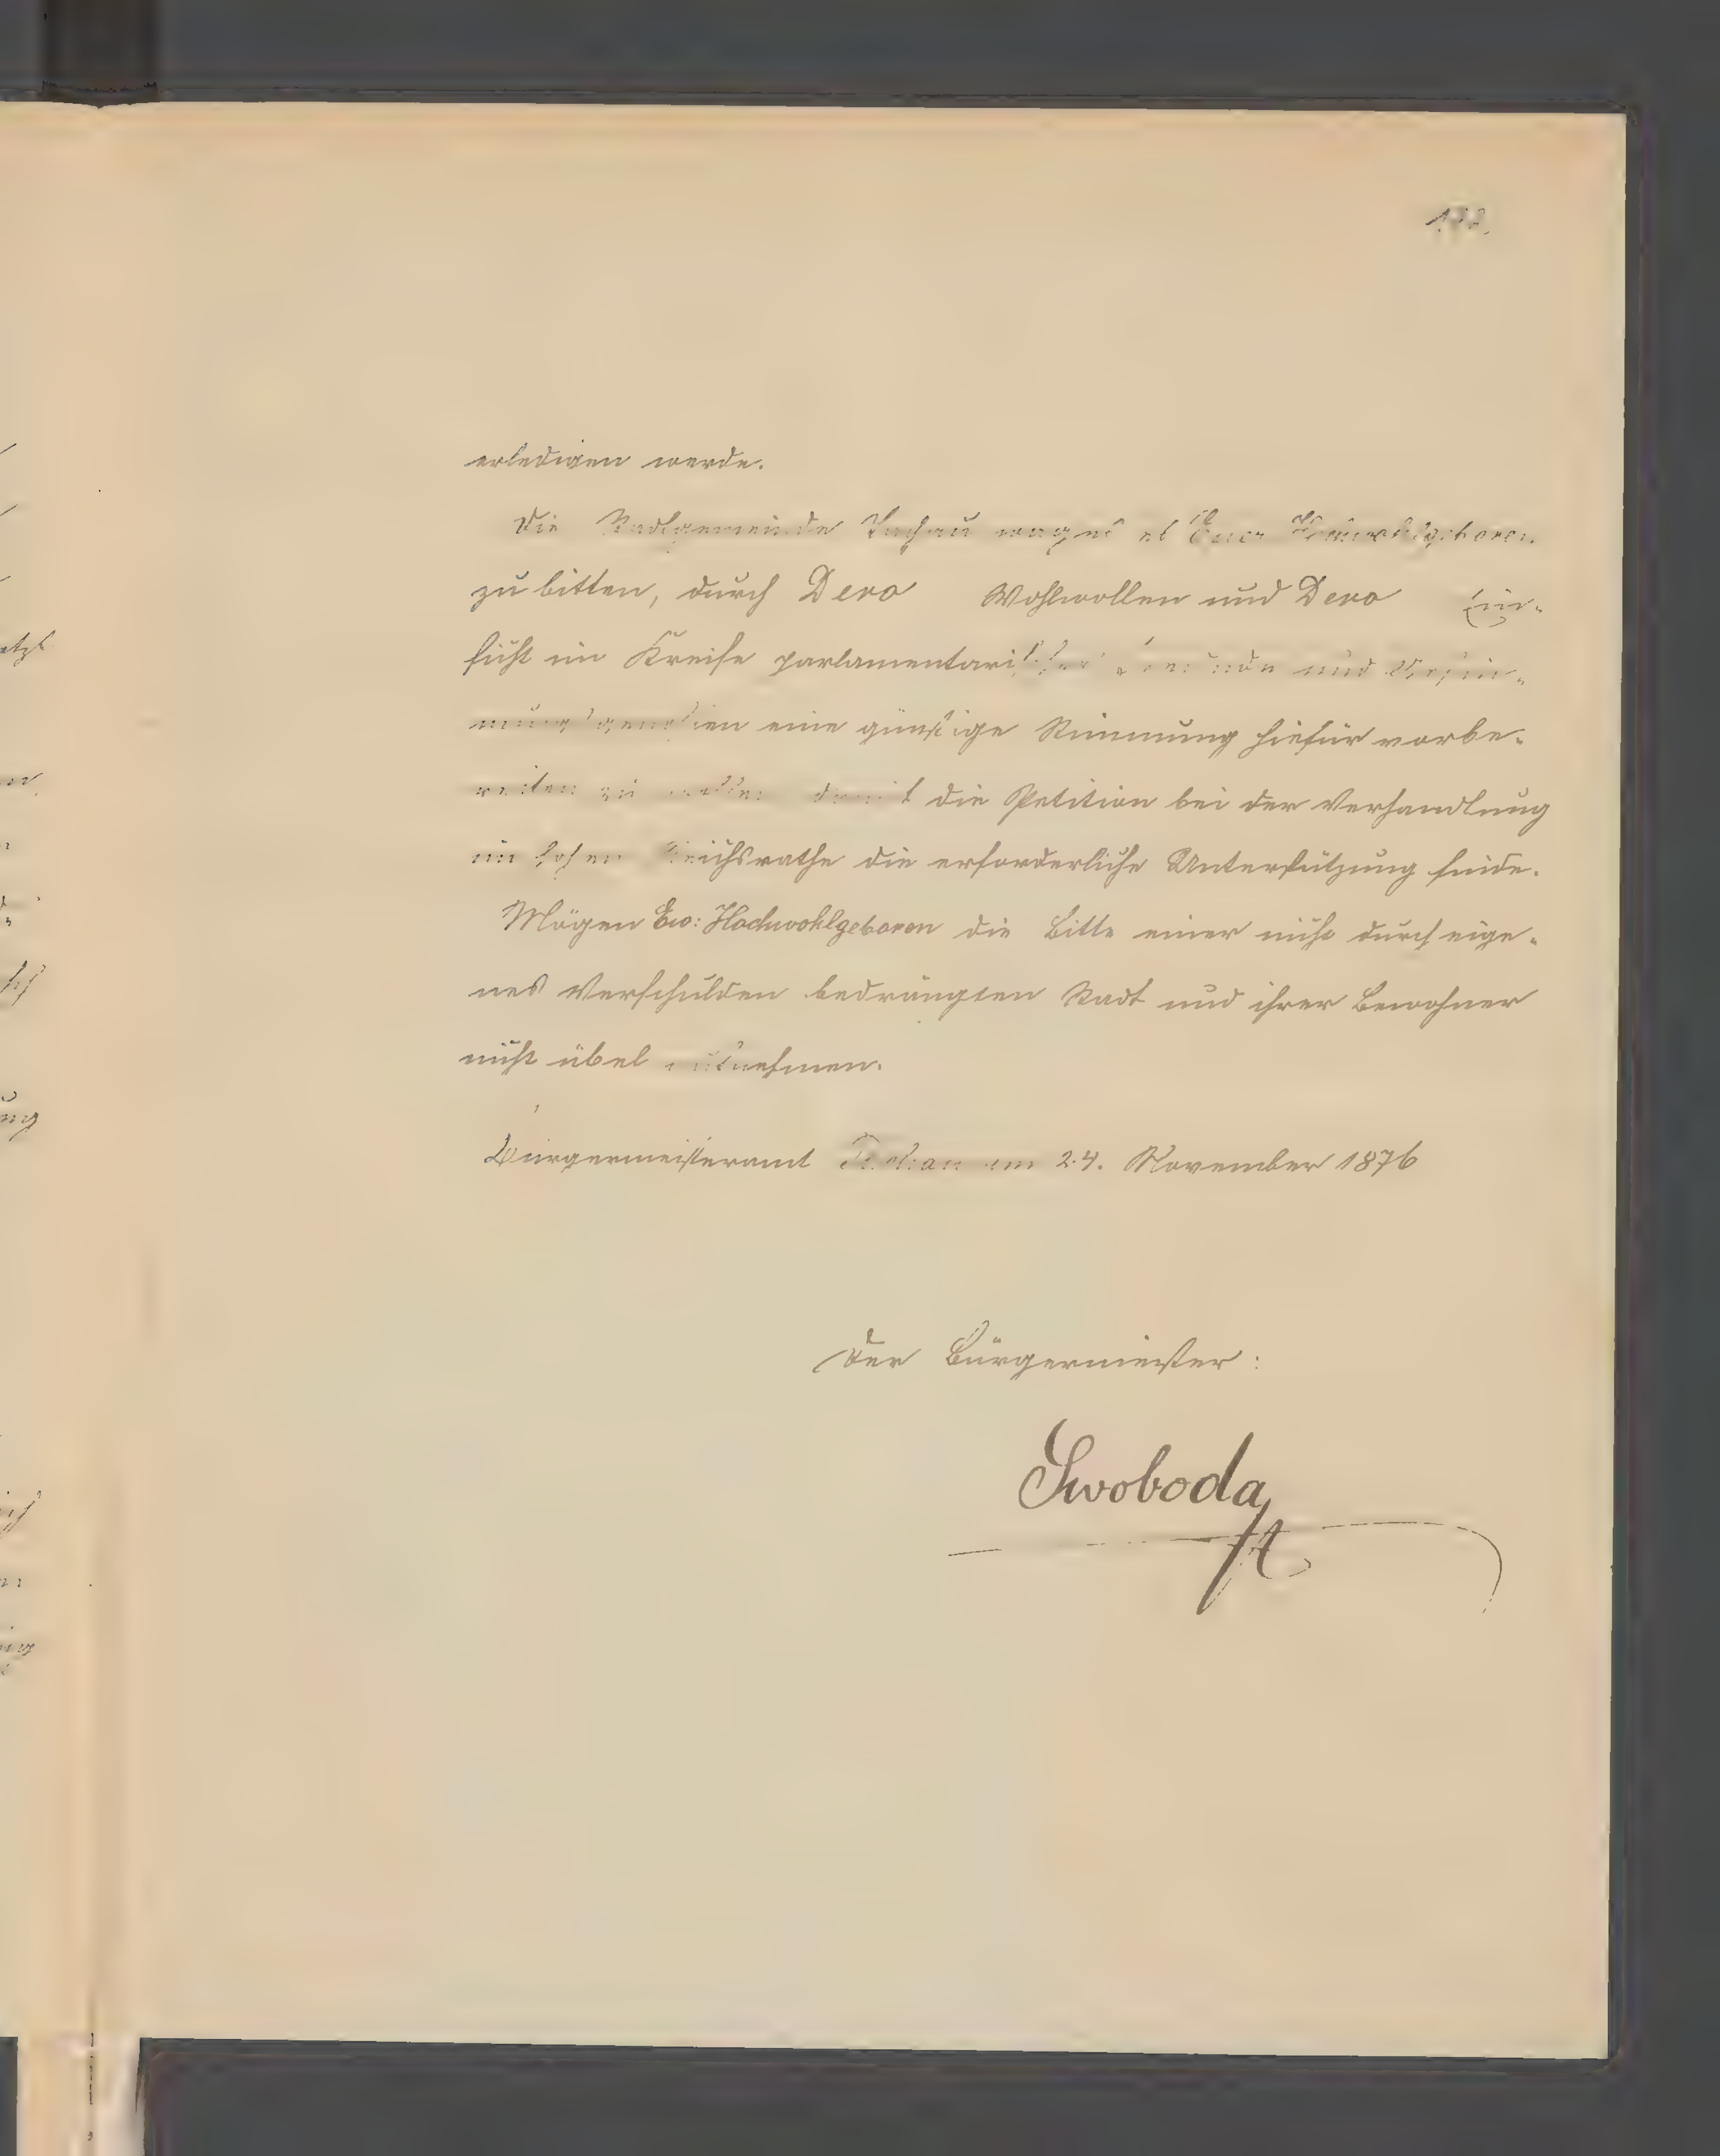 erledigen werde.
Die Stadtgemeinde Tachau wagt es Euer Hochwohlgeboren
zu bitten, durch Dero Wohlwollen und Dero Ein-
sicht im Kreise parlamentarischer Freunde und Gesin-
nungsgenossen eine günstige Stimmung hiefür vorbe-
reiten zu wollen damit die Petition bei der Verhandlung
im hohen Reichsrathe die erforderliche Unterstützung finde.
Mögen Ew: Hochwohlgeboren die Bitte einer nicht durch eige-
nes Verschulden bedrängten Stadt und ihrer Bewohner
nicht übel nehmen.
Bürgermeisteramt Tachau am 24. November 1876
Der Bürgermeister:
Swoboda